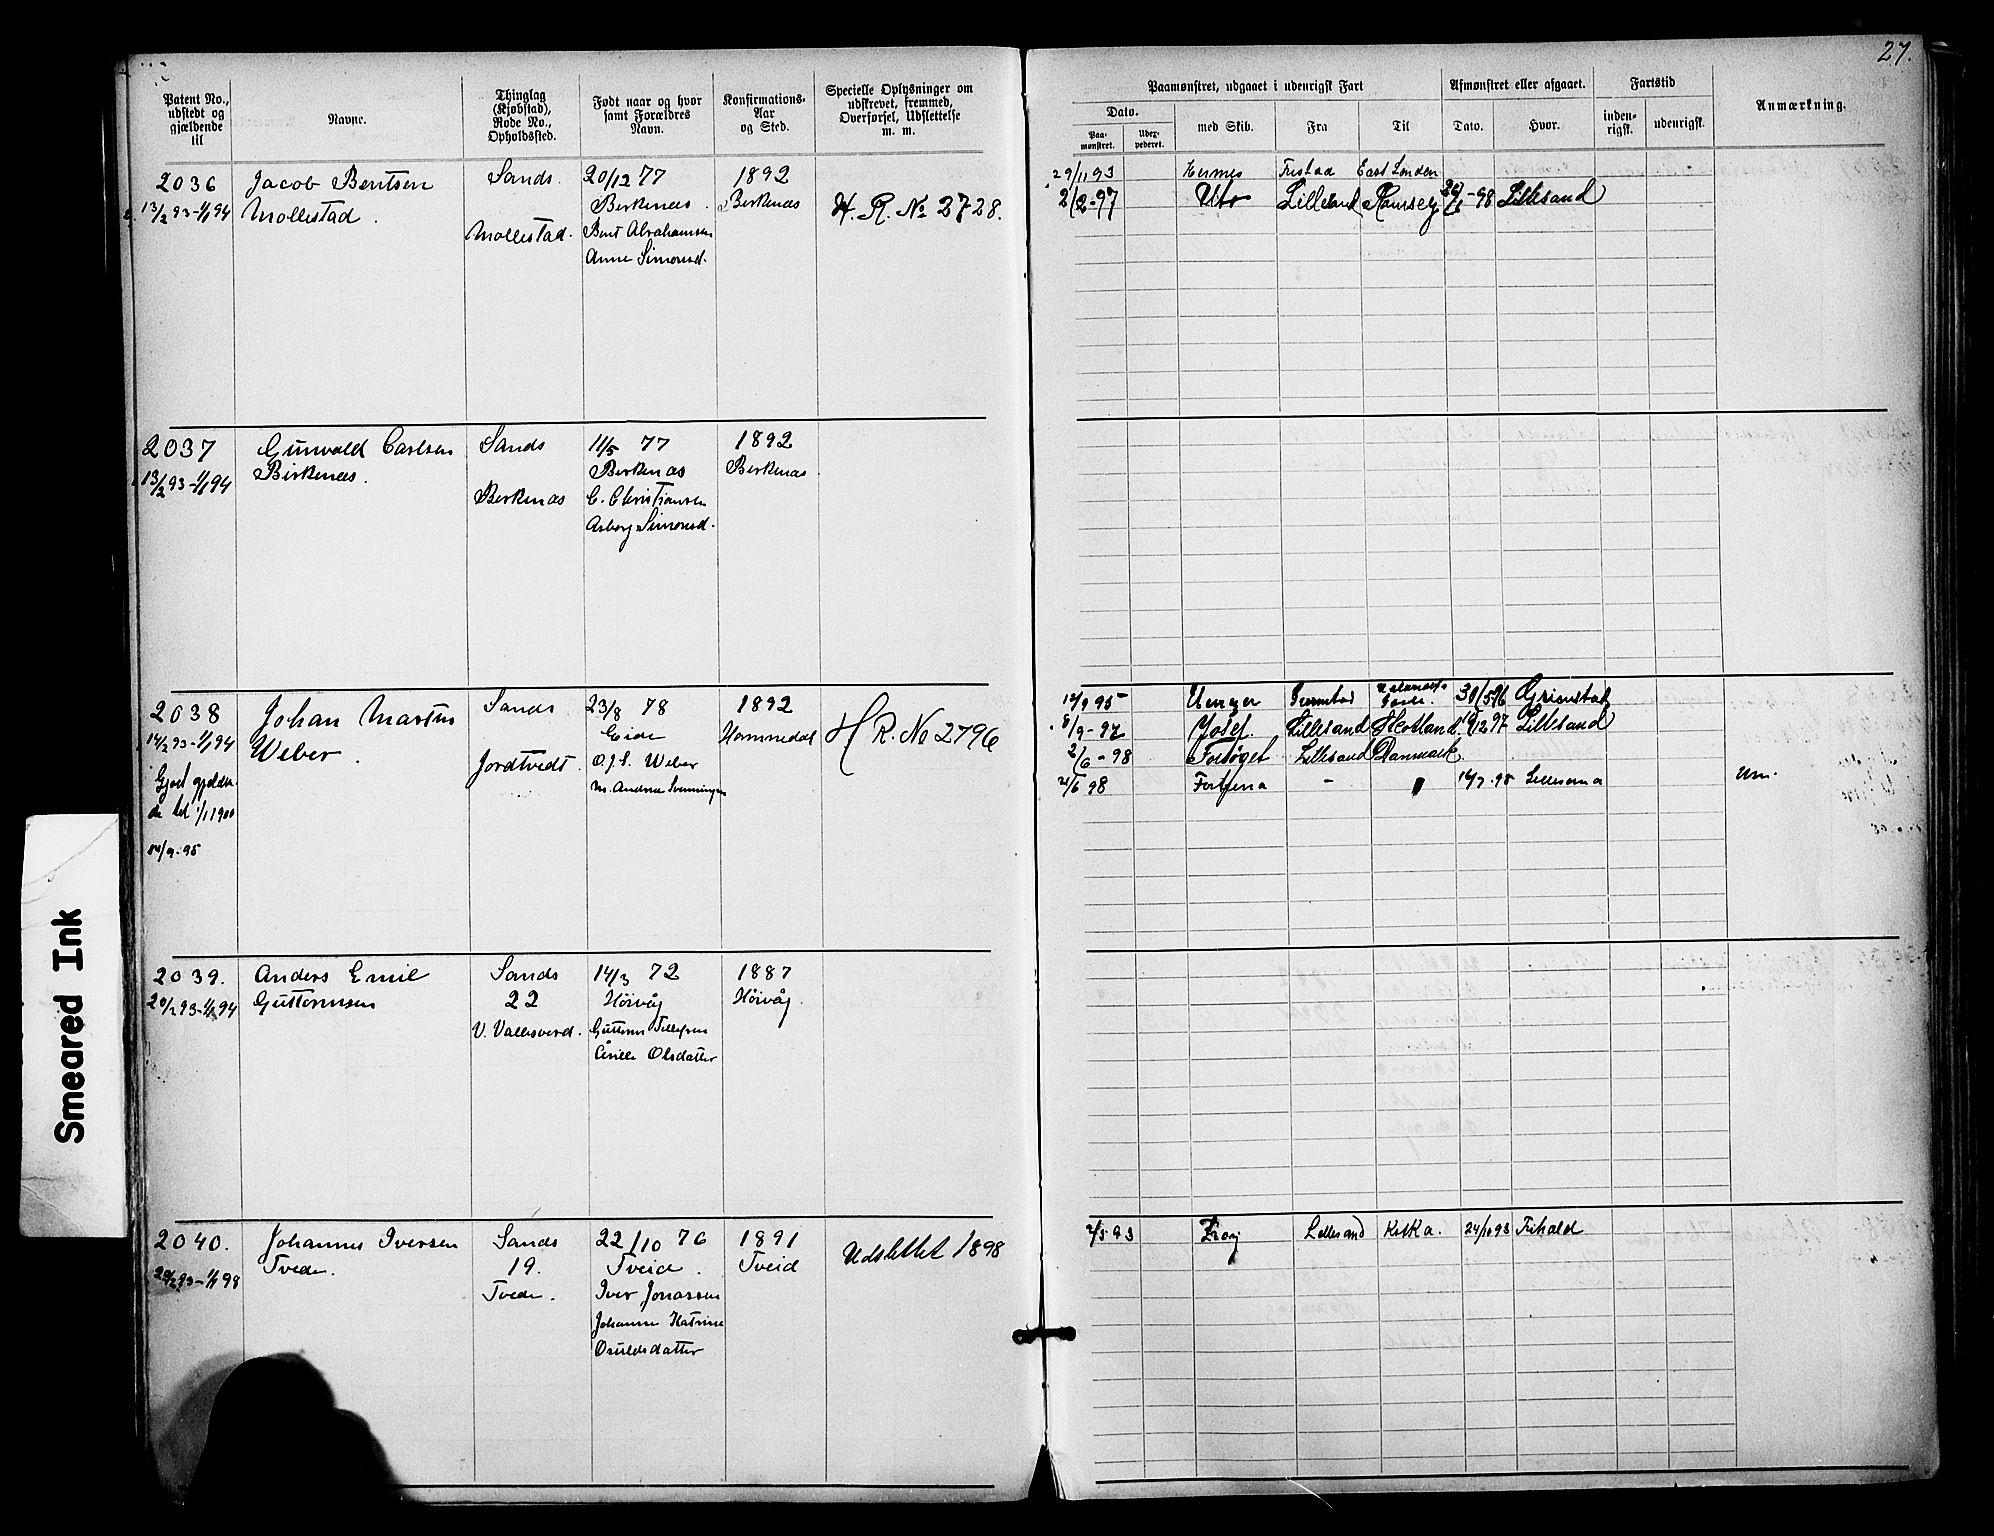 27.
Patent No., udstedt og gjældende til
Navne.
Thinglag (Kjøbstad), Rode No., Opholdssted.
Født naar og hvor samt Forældres Navn.
Konfirmations-Aar og Sted.
Specielle Oplysninger om udskrevet, fremmed, Overførsel, Udslettelse m. m.
Paamønstret, udgaaet i udenrigsk Fart
Afmønstret eller afgaaet.
Fartstid
Anmærkning.
Dato.
Paa-mønstret.
Udex-pederet.
med Skib.
Fra
Til
Dato.
Hvor.
inden-rigsk.
udenrigsk.
2036 Jacob Bentsen Sands. 20/12 77 1892
13/2 93-1/1 94 Mollestad. Birkenæs. Birkenæs H. R. No 2728.
Mollestad. Bent Abrahamsen
Anne Simonsd.
29/11 93 Hermes Fristad East London
2/2-97 Lillesand Ramsey -98 Lillesand
2037 Gunvald Carlsen Sands 11/5 77 1892
13/2 93-1/1 94 Birkenæs. Birkenæs Birkenæs
Birkenæs C. Christiansen
Asborg Simonsd.
2038 Johan Martin Sands 23/8 78 1892
14/2 93-1/1 94 Weber. Eide Hommedal H R. No 2796
Jordtvedt O. J. S. Weber
Gjort gjelden- M. Andrea Svenningsen
de til 1/1 1900
14/9-95
12/9 95 Unger 30/5 96 Grimstad
8/9-97 Josef. Lillesand Skotland. 19/12 97 Lillesand
2/6-98 Forsøget Lillesand Danmark
21/6 98 Fortuna - 14/7 98 Lillesand
2039. Anders Emil Sands 14/3 72 1887
20/2 93-1/1 94 Guttormsen 22 Høivåg Høivåg.
V. Vallesverd. Guttorm Tellefsen
Olsdatter
2040. Johannes Iversen Sands 22/10 76 1891
20/2 93-1/1 98 Tvede. 19. Tveid. Tveid Udslettet 1898
Tvede. Iver Jonassen
Johanne Katrine
Osuldsdatter
2/5 93 Lillesand Kotka. 24/10 93 Frhald
Smeared Ink